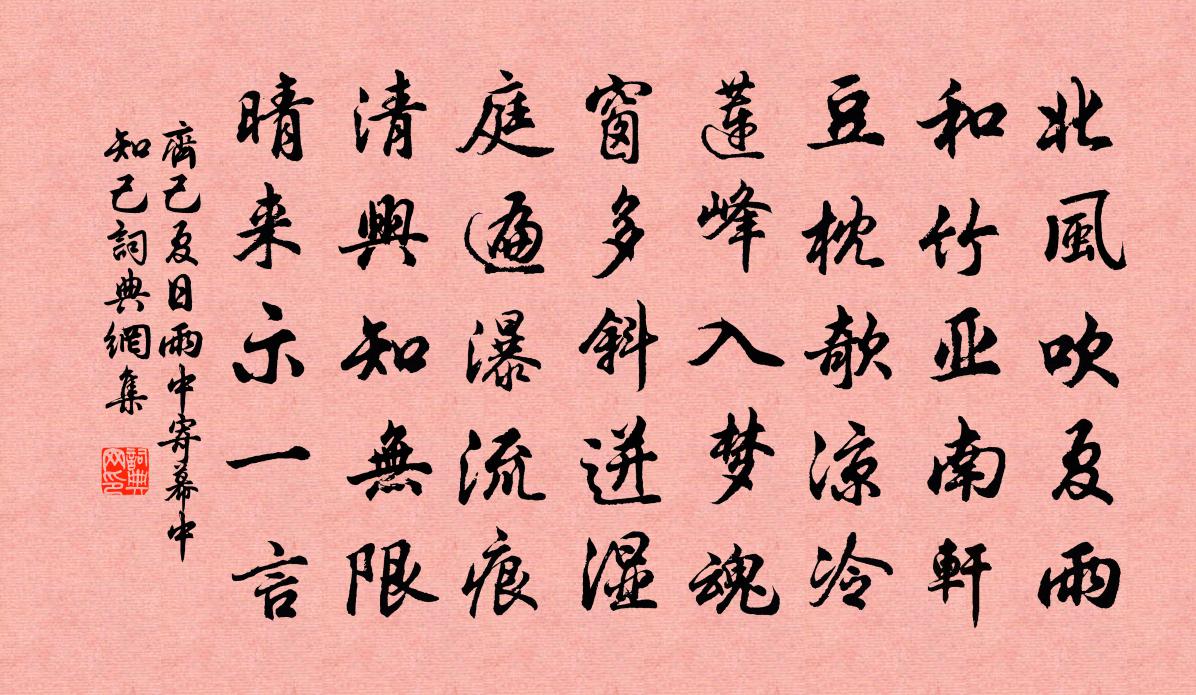 北風吹夏雨
和竹亚南軒
豆枕欹涼冷
蓮峰入梦魂
窗多斜迸湿
庭遍瀑流痕
清興知無限
晴来示一言
齊己夏日雨中寄幕中
知己詞典網集
詞典网印